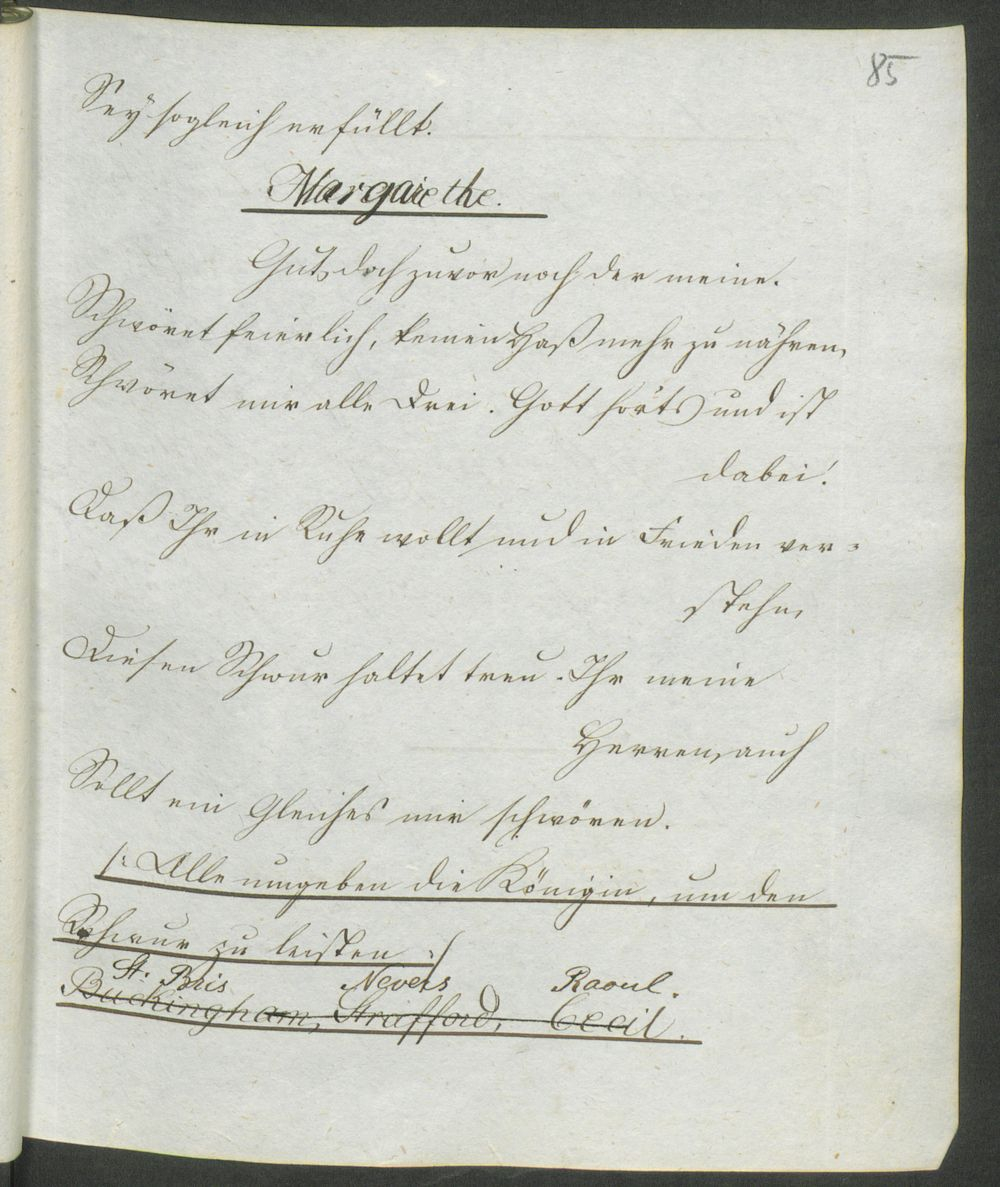 85
Sey sogleich erfüllt.
Margarethe.
Gut, doch zuvor noch der meine.
Schwöret feierlich, keinen Haß mehr zu nähren,
Schwöret mir alle Drei. Gott hört's und ist
dabei!
Daß Ihr in Ruhe wollt und in Frieden ver=
stehn,
Diesen Schwur haltet treu. Ihr meine
Herren, auch
Sollt ein Gleiches mir schwören.
/: Alle umgeben die Königin, um den
Schwur zu leisten :/
St. Bris Nevers Raoul.
Buckingham, Strafford, Cecil.